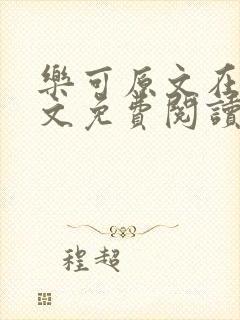 樂可原文在
文免費閱讀
程超